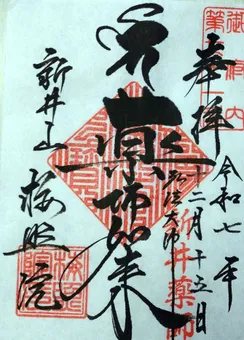 奉拝
令和七年
十二月十五日
弘法大師
新井薬師
薬師如来
新井山
梅照院